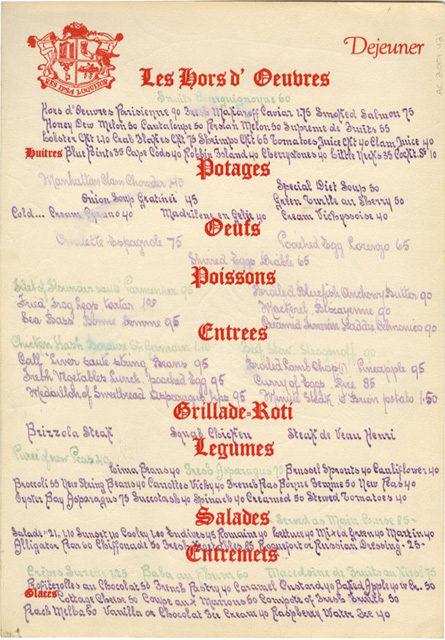 RES IPSA LOQUITUR
Dejeuner
AC 2009.431
Les Hors d' Oeuvres
Snails Bourguignonne 60
Hors d'Oeuvres Parisienne 90 Fresh Malossol Caviar 1.75 Smoked Salmon 75
Honey Dew Melon 50 Cantaloupe 50 Persian Melon 50 Supreme de Fruits 55
Lobster Ckt 1.10 Crab Flakes Ckt 75 Shrimps Ckt 65 Tomatoes Juice Ckt 40 Clam Juice 40
Huitres Blue Points 55 Cape Cods 40 Robbin Island 40 Cherrystones 40 Little Necks 35 Cockt. S. 10
Potages
Manhattan Clam Chowder 40
Special Diet Soup 50
Onion Soup Gratinei 45
Green Turtle au Sherry 50
Cold... Cream 40 Madrilene en Gelee 40 Cream Vichyssoise 40
Oeufs
Omelette Espagnole 75
Poached Egg Lorenzo 65
Shirred Eggs Diable 65
Poissons
Filet of Flounder saute 95
Broiled Bluefish Anchovy Butter 90
Fried Frog Legs tartar
Mackrel 90
Sea Bass Bonne Femme 95
Creamed Haddie 90
Entrees
Chicken Hash
Beef Stew Stroganoff 90
Calf' Liver saute String Beans 95
Broiled Lamb Chops Pineapple 95
Fresh Vegetables Lunch, poached Egg 95
Curry of Eggs Rice 85
Medaillon of Sweetbread Asparagus tips 95
Minute Steak potato 1.50
Grillade-Roti
Brizzola Steak
Squab Chicken
Steak de Veau Henri
Legumes
Puree of new Peas 40
Lima Beans 40 Fresh Asparagus 75 Brussel Sprouts 40 Cauliflower 40
Broccoli 55 New String Beans 40 Carrottes Vichy 40 French Peas Bonne Femme 50 New Peas 40
Oyster Bay Asparagus 75 Succotash 40 Spinach 40 Creamed 50 Stewed Tomatoes 40
Salades
Served as Main Course 85-
Salade "21" 40 Sunset 40 Cooley Leo Endives 45 Romain 40 Lettuce 40 Mixed Green 40 Martin 40
Alligator Pear 60 Chiffonade 50 Fresh 85 Roquefort or Russian Dressing - 25-
Entremets
Crêpes Suzette 1.25 Baba au Rhum 60 Macedoine de Fruits au Kirsch 75
Profiterolles au Chocolat 50 French Pastry 40 Caramel Custard 40 Baked Apple 40 Cr. 50
Glaces Cottage Cheese 50 Coupe aux Marrons 50 Compote of Fresh Fruits 50
Peach Melba 60 Vanilla or Chocolat Ice Cream 40 Raspberry Water Ice 40